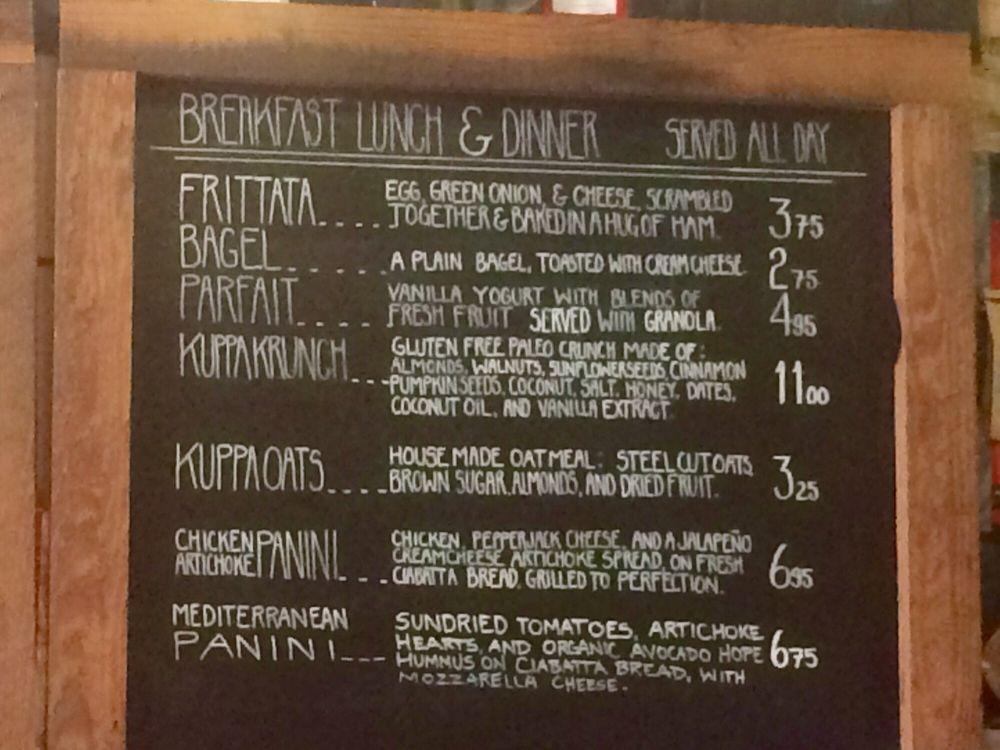 BREAKFAST LUNCH & DINNER SERVED ALL DAY
FRITTATA.... EGG, GREEN ONION, & CHEESE, SCRAMBLED
TOGETHER & BAKED IN A HUG OF HAM. 3 75
BAGEL...... A PLAIN BAGEL, TOASTED WITH CREAM CHEESE 2 75
PARFAIT.... VANILLA YOGURT WITH BLENDS OF
FRESH FRUIT SERVED WITH GRANOLA. 4 95
KUPPA KRUNCH... GLUTEN FREE PALEO CRUNCH MADE OF:
ALMONDS, WALNUTS, SUNFLOWER SEEDS, CINNAMON
PUMPKIN SEEDS, COCONUT, SALT, HONEY, DATES, 11 00
COCONUT OIL, AND VANILLA EXTRACT.
KUPPA OATS.... HOUSE MADE OATMEAL: STEEL CUT OATS,
BROWN SUGAR, ALMONDS, AND DRIED FRUIT. 3 25
CHICKEN ARTICHOKE PANINI... CHICKEN, PEPPERJACK CHEESE, AND A JALAPEÑO
CREAMCHEESE ARTICHOKE SPREAD, ON FRESH 6 95
CIABATTA BREAD, GRILLED TO PERFECTION.
MEDITERRANEAN SUNDRIED TOMATOES, ARTICHOKE
PANINI... HEARTS, AND ORGANIC AVOCADO HOPE 6 75
HUMMUS ON CIABATTA BREAD, WITH
MOZZARELLA CHEESE.